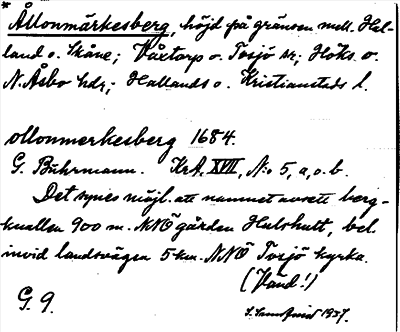 * Ållonmärkesberg, höjd på gränsen mell. Hal-
land o. Skåne; Våxtorp o. Tosjö sr; Höks o.
N. Åsbo hdr; Hallands o. Kristianstads l.
ollonmerkesberg 1684.
G. Buhrmann. KrA, XVII, N:o 5, a, o. b.
Det synes möjl. att namnet avsett berg-
knallen 900 m. NNÖ gården Hulshult, bel.
invid landsvägen 5 km. NNÖ Tosjö kyrka.
(Vänd!)
G 9.
1937.